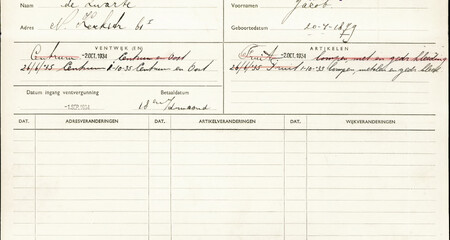 Naam de Zwarte Voornamen Jacob
Adres N. Kerkstr 61 I Geboortedatum 20-7-1879
VENTWIJK (EN) ARTIKELEN
Centrum -2 OCT. 1934 Centrum en Oost Fruit -2 OCT. 1934 lompen, met. en gedr. kleeding
26/6/'45 Centrum 1-10-35 Centrum en Oost 26/6/'45 Fruit 1-10-35 lompen, metalen en gedr. kleed
Datum ingang ventvergunning Betaaldatum
-1 OCT. 1934 18en
DAT. ADRESVERANDERINGEN DAT. ARTIKELVERANDERINGEN DAT. WIJKVERANDERINGEN